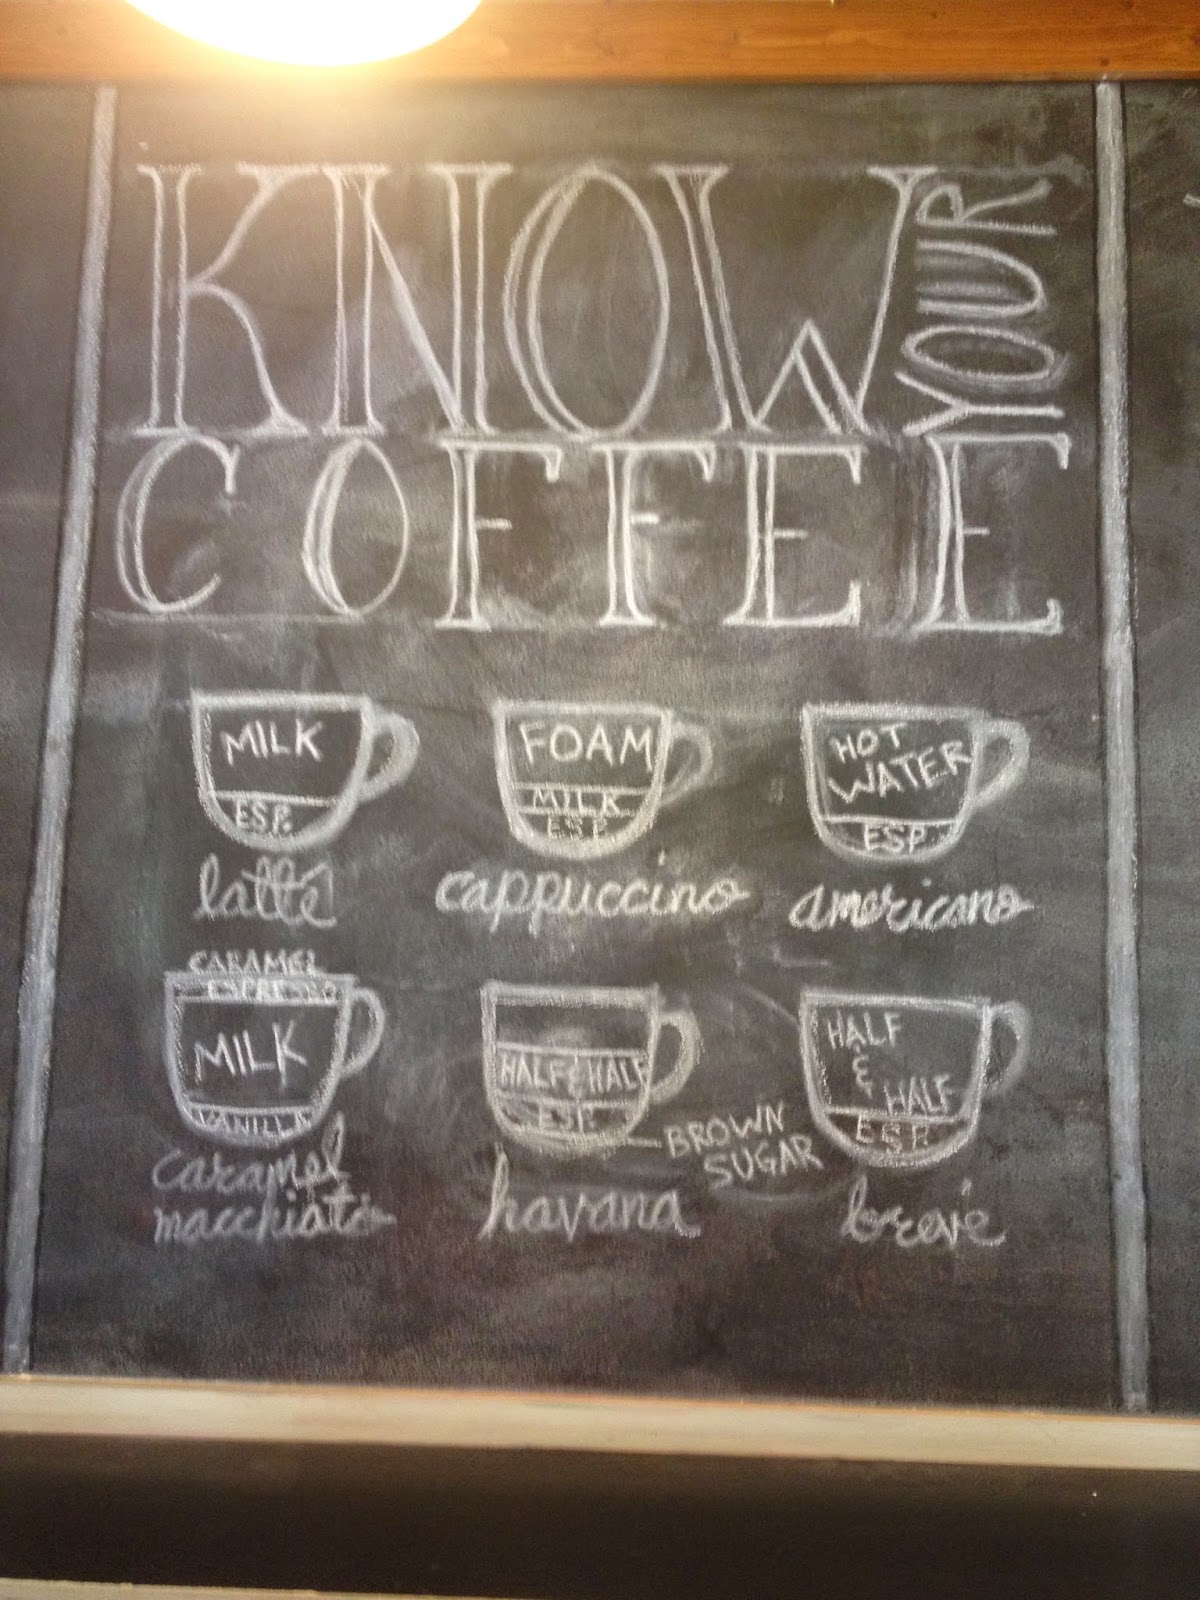 KNOW YOUR
COFFEE
MILK
ESP.
latté
FOAM
MILK
ESP.
cappuccino
HOT
WATER
ESP.
americano
CARAMEL
ESPRESSO
MILK
VANILLA
caramel
macchiato
HALF & HALF
ESP.
BROWN
SUGAR
havana
HALF
&
HALF
ESP.
brevé